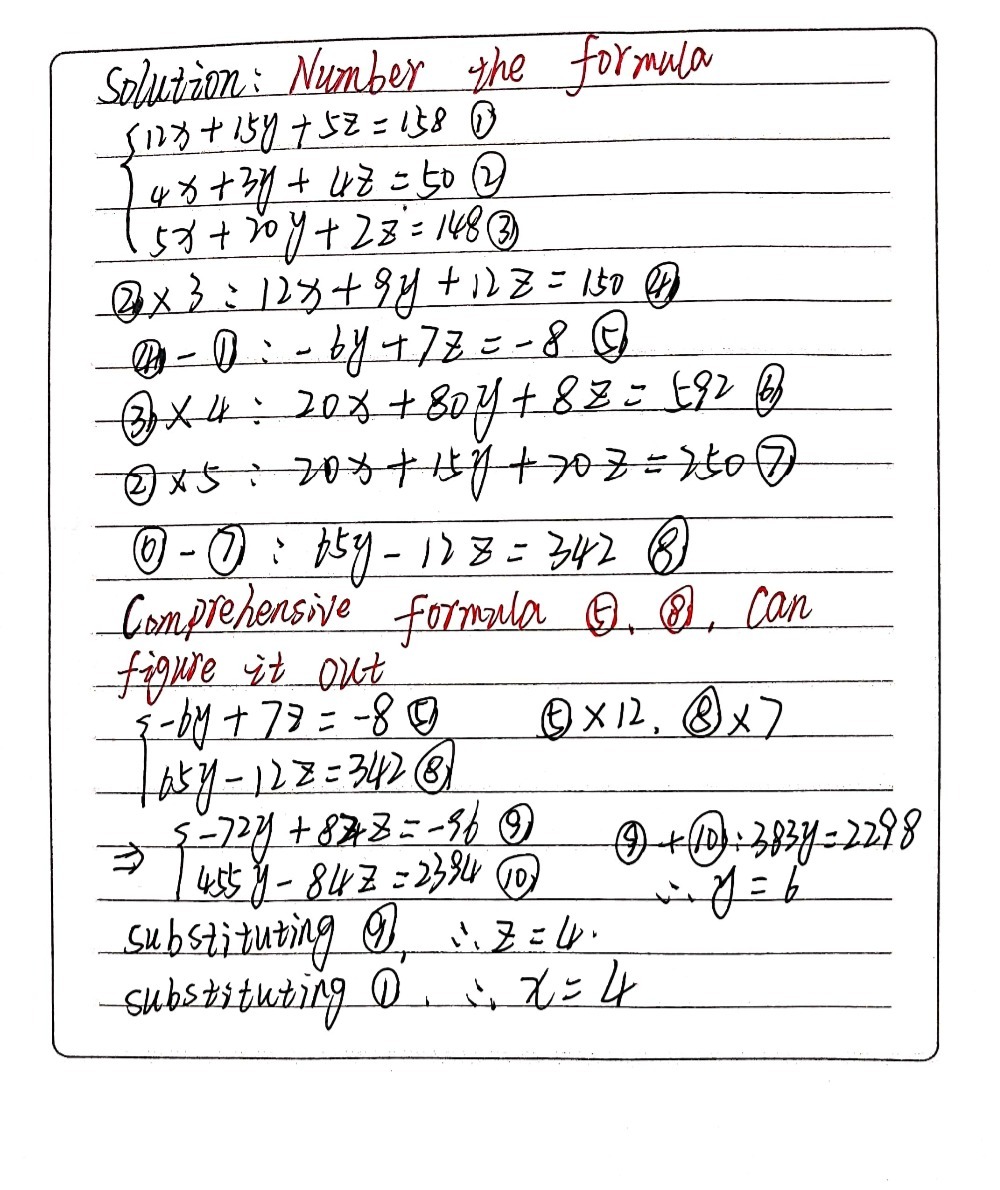 Solution: Number the formula
{12x + 15y + 5z = 158 ①
4x + 3y + 4z = 50 ②
5x + 20y + 2z = 148 ③
② × 3 : 12x + 9y + 12z = 150 ④
④ - ① : -6y + 7z = -8 ⑤
③ × 4 : 20x + 80y + 8z = 592 ⑥
② × 5 : 20x + 15y + 20z = 250 ⑦
⑥ - ⑦ : 65y - 12z = 342 ⑧
Comprehensive formula ⑤, ⑧, can
figure it out
{-6y + 7z = -8 ⑤ ⑤ × 12, ⑧ × 7
65y - 12z = 342 ⑧
⇒ {-72y + 84z = -96 ⑨ ⑨ + ⑩ : 383y = 2298
455y - 84z = 2394 ⑩ ∴ y = 6
substituting ⑨, ∴ z = 4.
substituting ①, ∴ x = 4